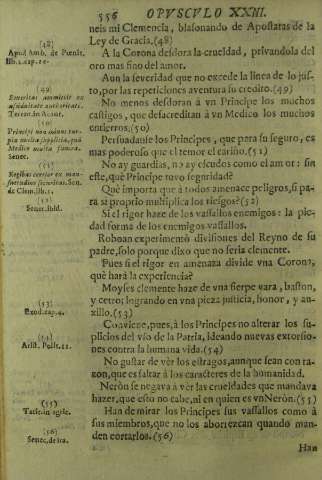 556 OPVSCVLO XXIII.
neis mi Clemencia, blasonando de Apostatas de la
Ley de Gracia.(48)
A la Corona desdora la crueldad, privandola del
oro mas fino del amor.
Aun la severidad que no excede la linea de lo jus-
to, por las repeticiones aventura su credito.(49)
No menos desdoran à vn Principe los muchos
castigos, que desacreditan à vn Medico los muchos
entierros.(50)
Persuadanse los Principes, que para su seguro, es
mas poderoso que el temor el cariño.(51)
No ay guardias, no ay escudos como el amor: sin
este, què Principe tuvo seguridad?
Què importa que à todos amenace peligros, si pa-
ra si proprio multiplica los riesgos?(52)
Si el rigor haze de los vassallos enemigos: la pie-
dad forma de los enemigos vassallos.
Roboan experimentò divisiones del Reyno de su
padre, solo porque dixo que no seria clemente.
Pues si el rigor en amenaza divide vna Corona,
què harà la experiencia?
Moyses clemente haze de vna sierpe vara, baston,
y cetro; logrando en vna pieza justicia, honor, y au-
xilio.(53)
Conviene, pues, à los Principes no alterar los su-
plicios del vso de la Patria, ideando nuevas extorsio-
nes contra la humana vida.(54)
No gustar de ver los estragos, aunque sean con ra-
zon, que es faltar à los caractères de la humanidad.
Neròn se negava à vèr las crueldades que mandava
hazer, que esto no cabe, ni en quien es vn Neròn.(55)
Han de mirar los Principes sus vassallos como à
sus miembros, que no los aborrezcan quando man-
den cortarlos.(56)
Han
(48)
Apud Amb. de
lib.1.cap.
(49)
Severitas
assiduitate
(50)
Principi non minus tur-
pia multa supplicia, quà
Medico multa funera.
Senec.
(51)
Senec.
de Clem.lib.1.
(52)
Senec.ibid.
(53)
Exod.cap.4.
(54)
Arist. Polit.
(55)
Tacit.in Agric.
(56)
Senec.de ira.